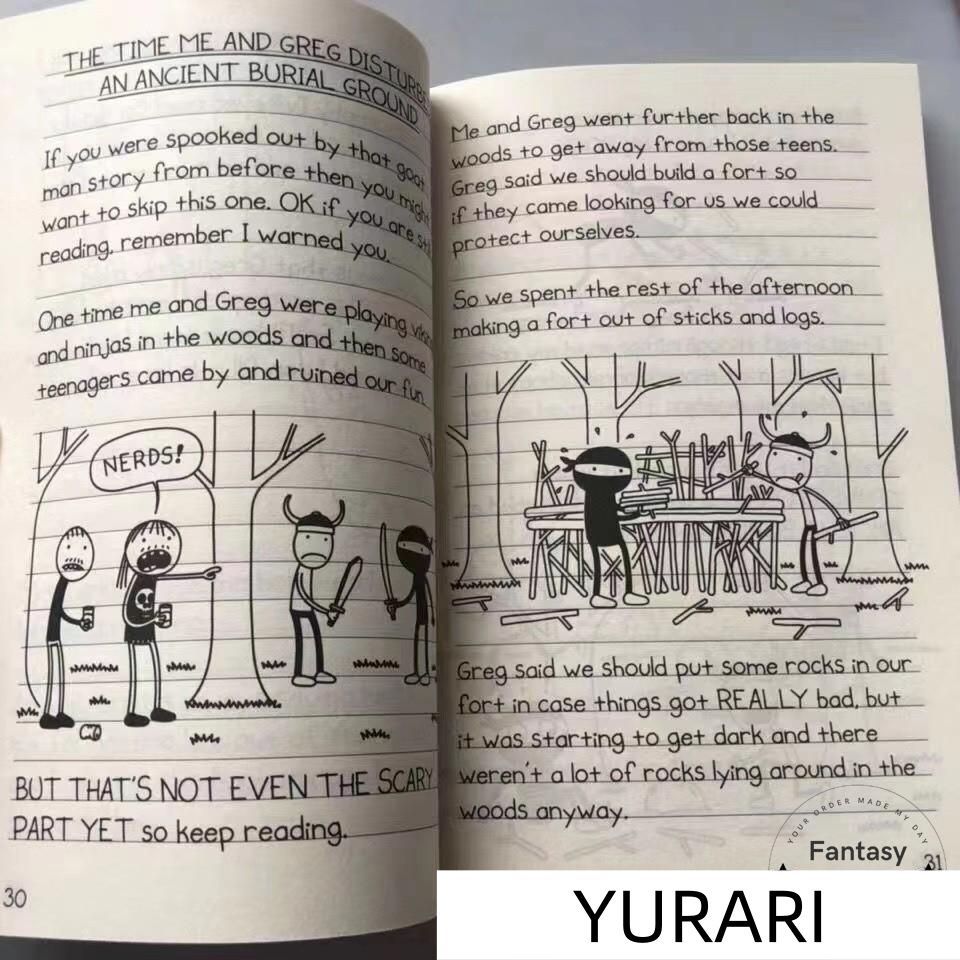 THE TIME ME AND GREG
AN ANCIENT BURIAL GROUND
If you were spooked out by that goat
man story from before then you might
want to skip this one. OK if you are
reading, remember I warned you.
One time me and Greg were playing
and ninjas in the woods and then some
teenagers came by and ruined our fun.
NERDS!
BUT THAT'S NOT EVEN THE SCARY
PART YET so keep reading.
30
Me and Greg went further back in the
woods to get away from those teens.
Greg said we should build a fort so
if they came looking for us we could
protect ourselves.
So we spent the rest of the afternoon
making a fort out of sticks and logs.
Greg said we should put some rocks in our
fort in case things got REALLY bad, but
it was starting to get dark and there
weren't a lot of rocks lying around in the
woods anyway.
31
YOUR ORDER MADE MY DAY
Fantasy
YURARI